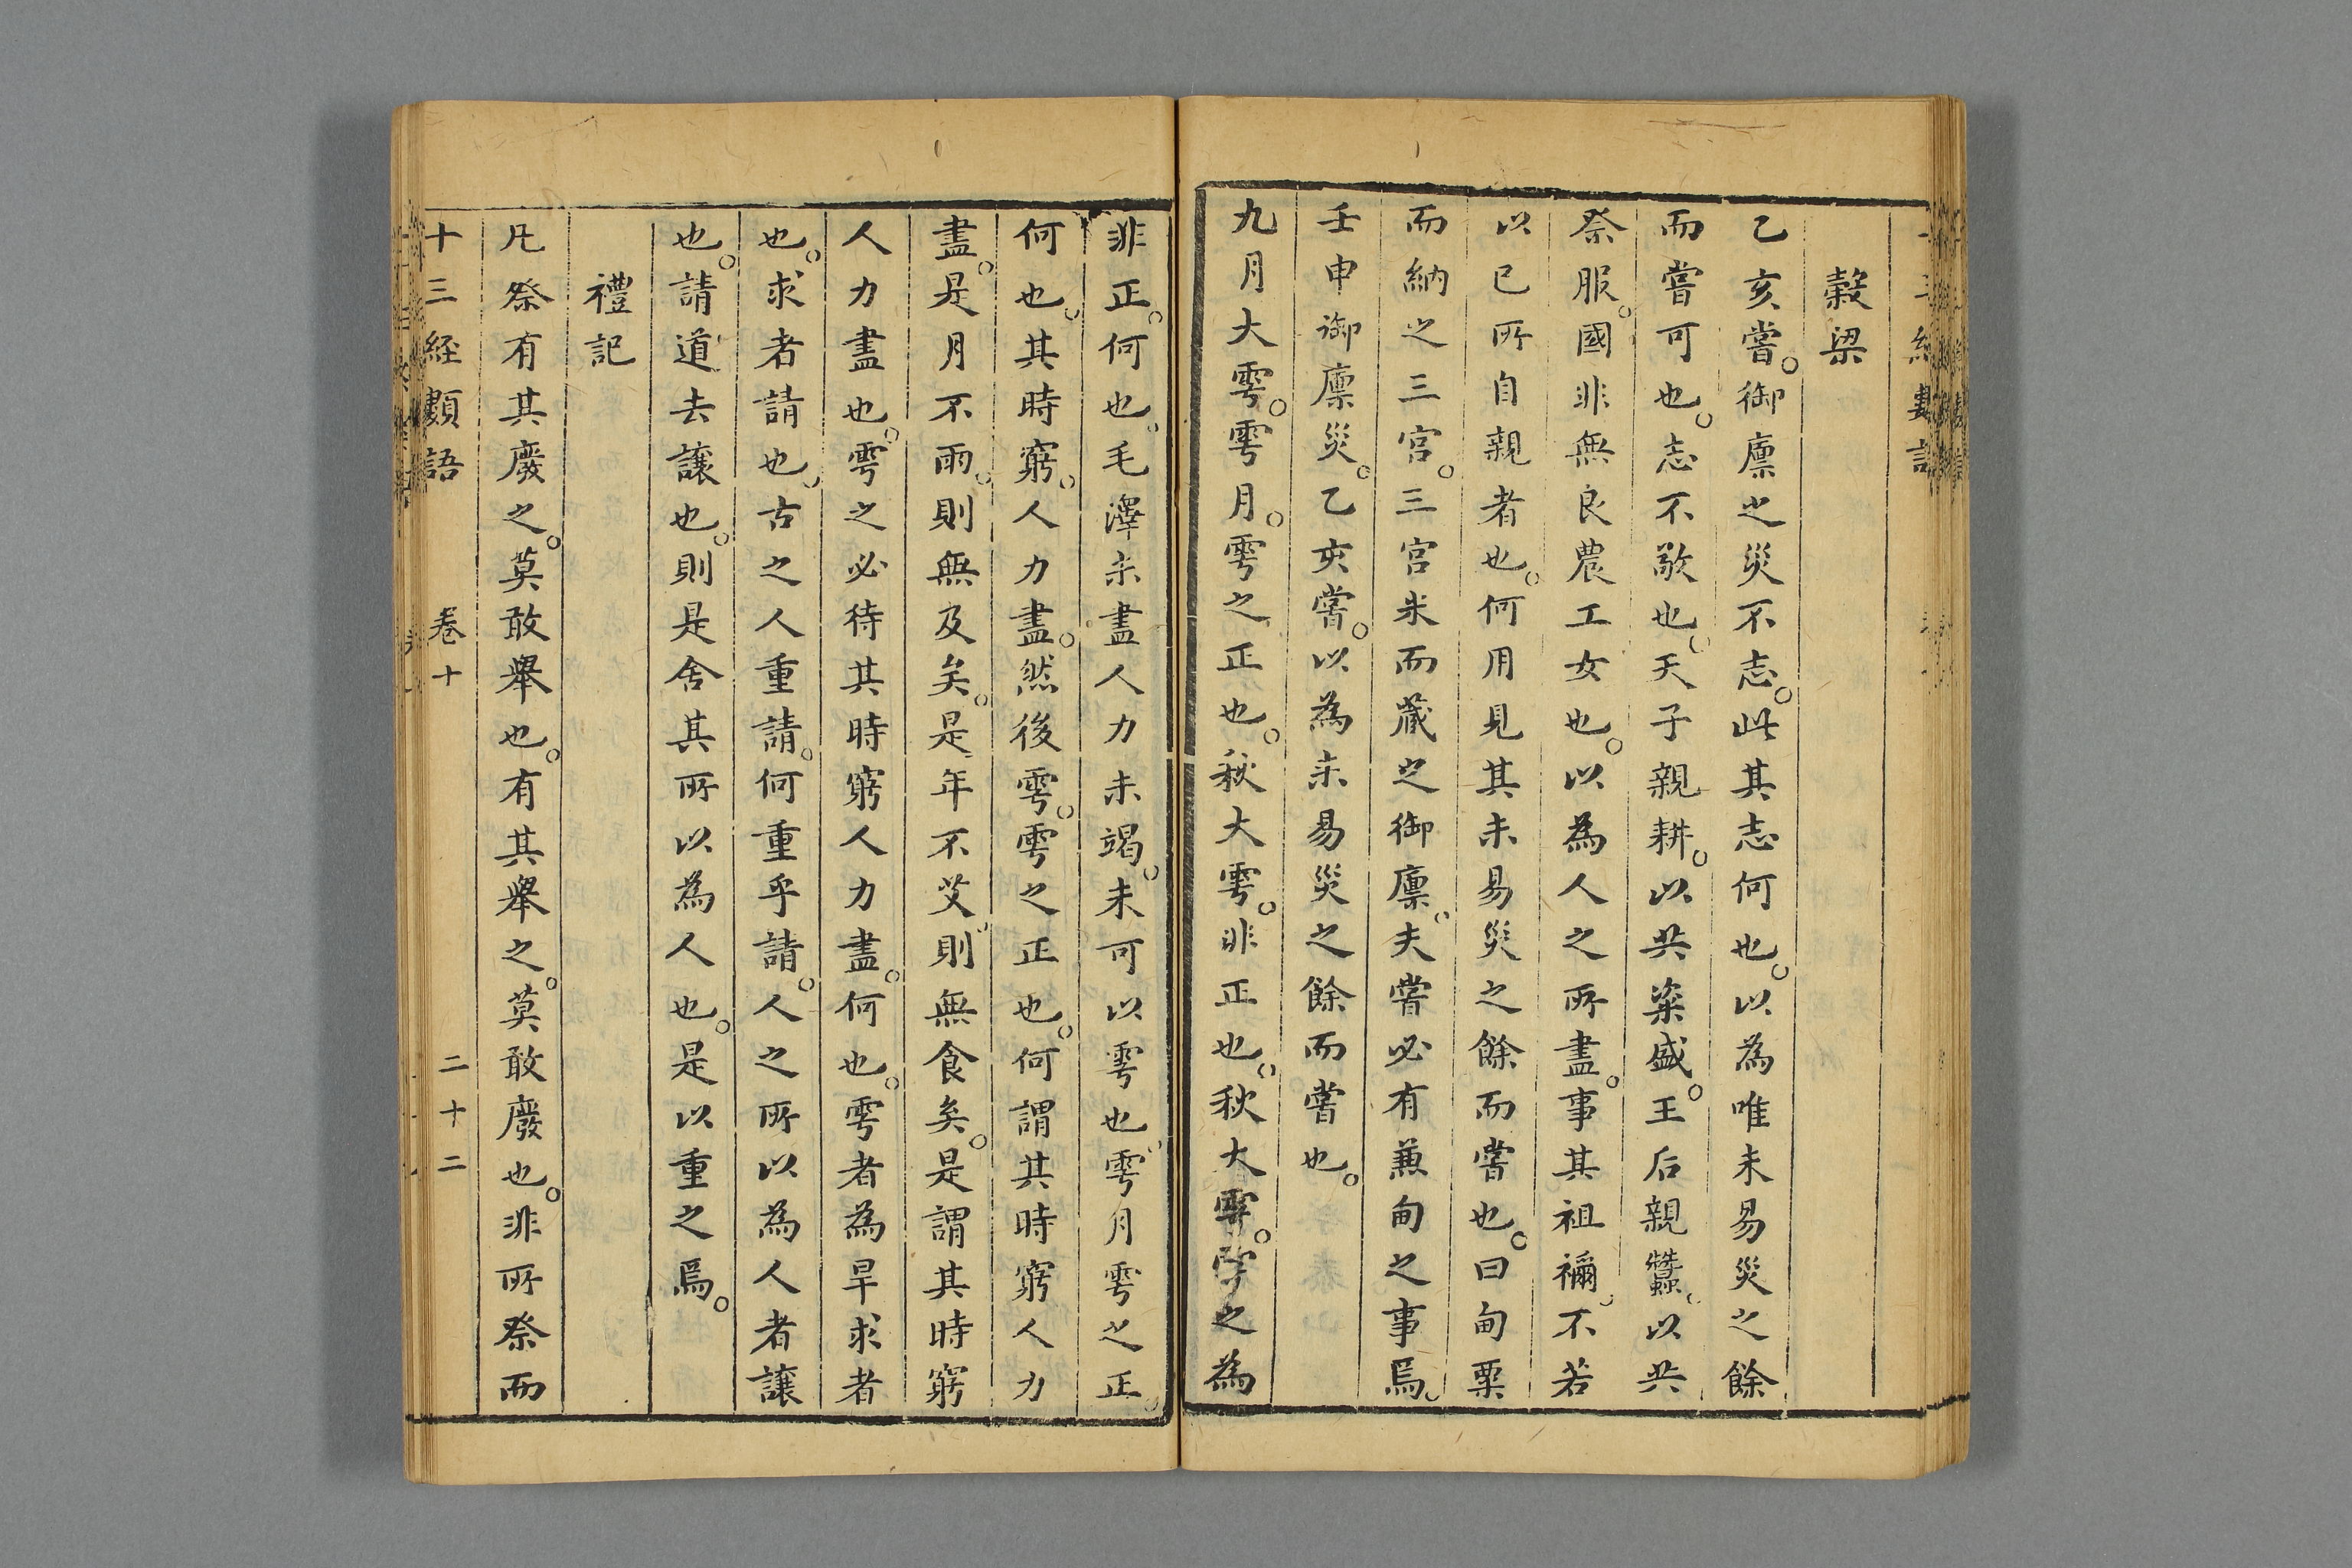 穀梁
乙亥嘗。御廩之災不志。此其志何也。以為唯未易災之餘
而嘗可也。志不敬也。天子親耕。以共粢盛。王后親蠶。以共
祭服。國非無良農工女也。以為人之所盡。事其祖禰。不若
以已所自親者也。何用見其未易災之餘而嘗也。曰甸粟
而納之三宮。三宮米而藏之御廩。夫嘗必有兼甸之事焉。
壬申御廩災。乙亥嘗。以為未易災之餘而嘗也。
九月大雩。雩月。雩之正也。秋大雩。非正也。秋大雩。雩之為
非正。何也。毛澤未盡人力未竭。未可以雩也。雩月雩之正。
何也。其時窮。人力盡。然後雩。雩之正也。何謂其時窮人力
盡。是月不雨。則無及矣。是年不艾則無食矣。是謂其時窮
人力盡也。雩之必待其時窮人力盡。何也。雩者為旱求者
也。求者請也。古之人重請。何重乎請。人之所以為人者讓
也。請道去讓也。則是舍其所以為人也。是以重之焉。
禮記
凡祭有其廢之。莫敢舉也。有其舉之。莫敢廢也。非所祭而
十三経類語 卷十 二十二